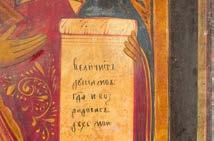 величитъ
душа моѧ
гда и во
зрадовасѧ
дхъ мои